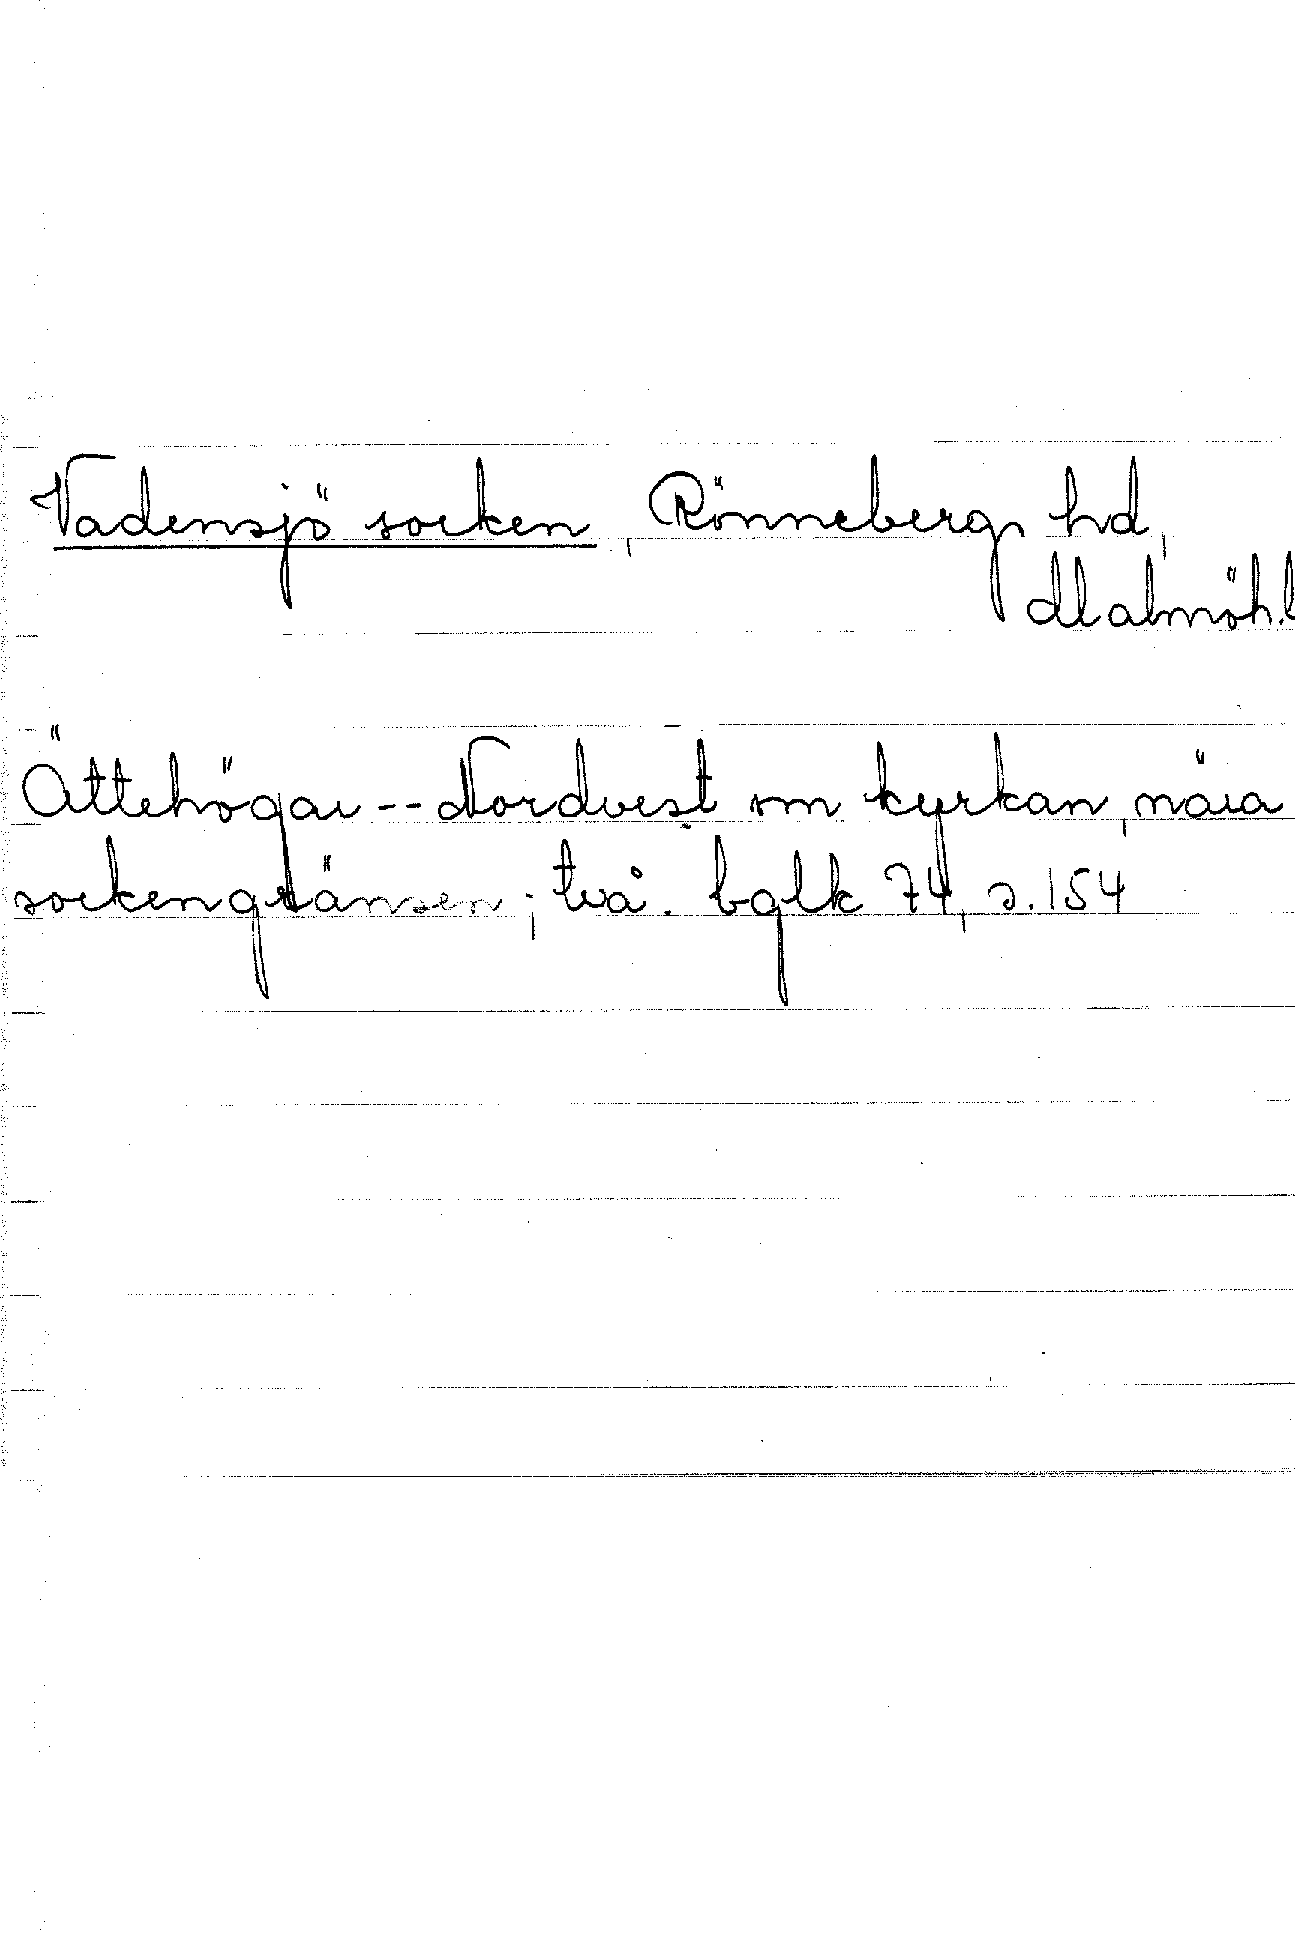 Vadensjö socken, Rönnebergs hd,
Malmöh.l
Ättehögar -- Nordvest om kyrkan, nära
sockengränsen; två. bglk 74, s. 154